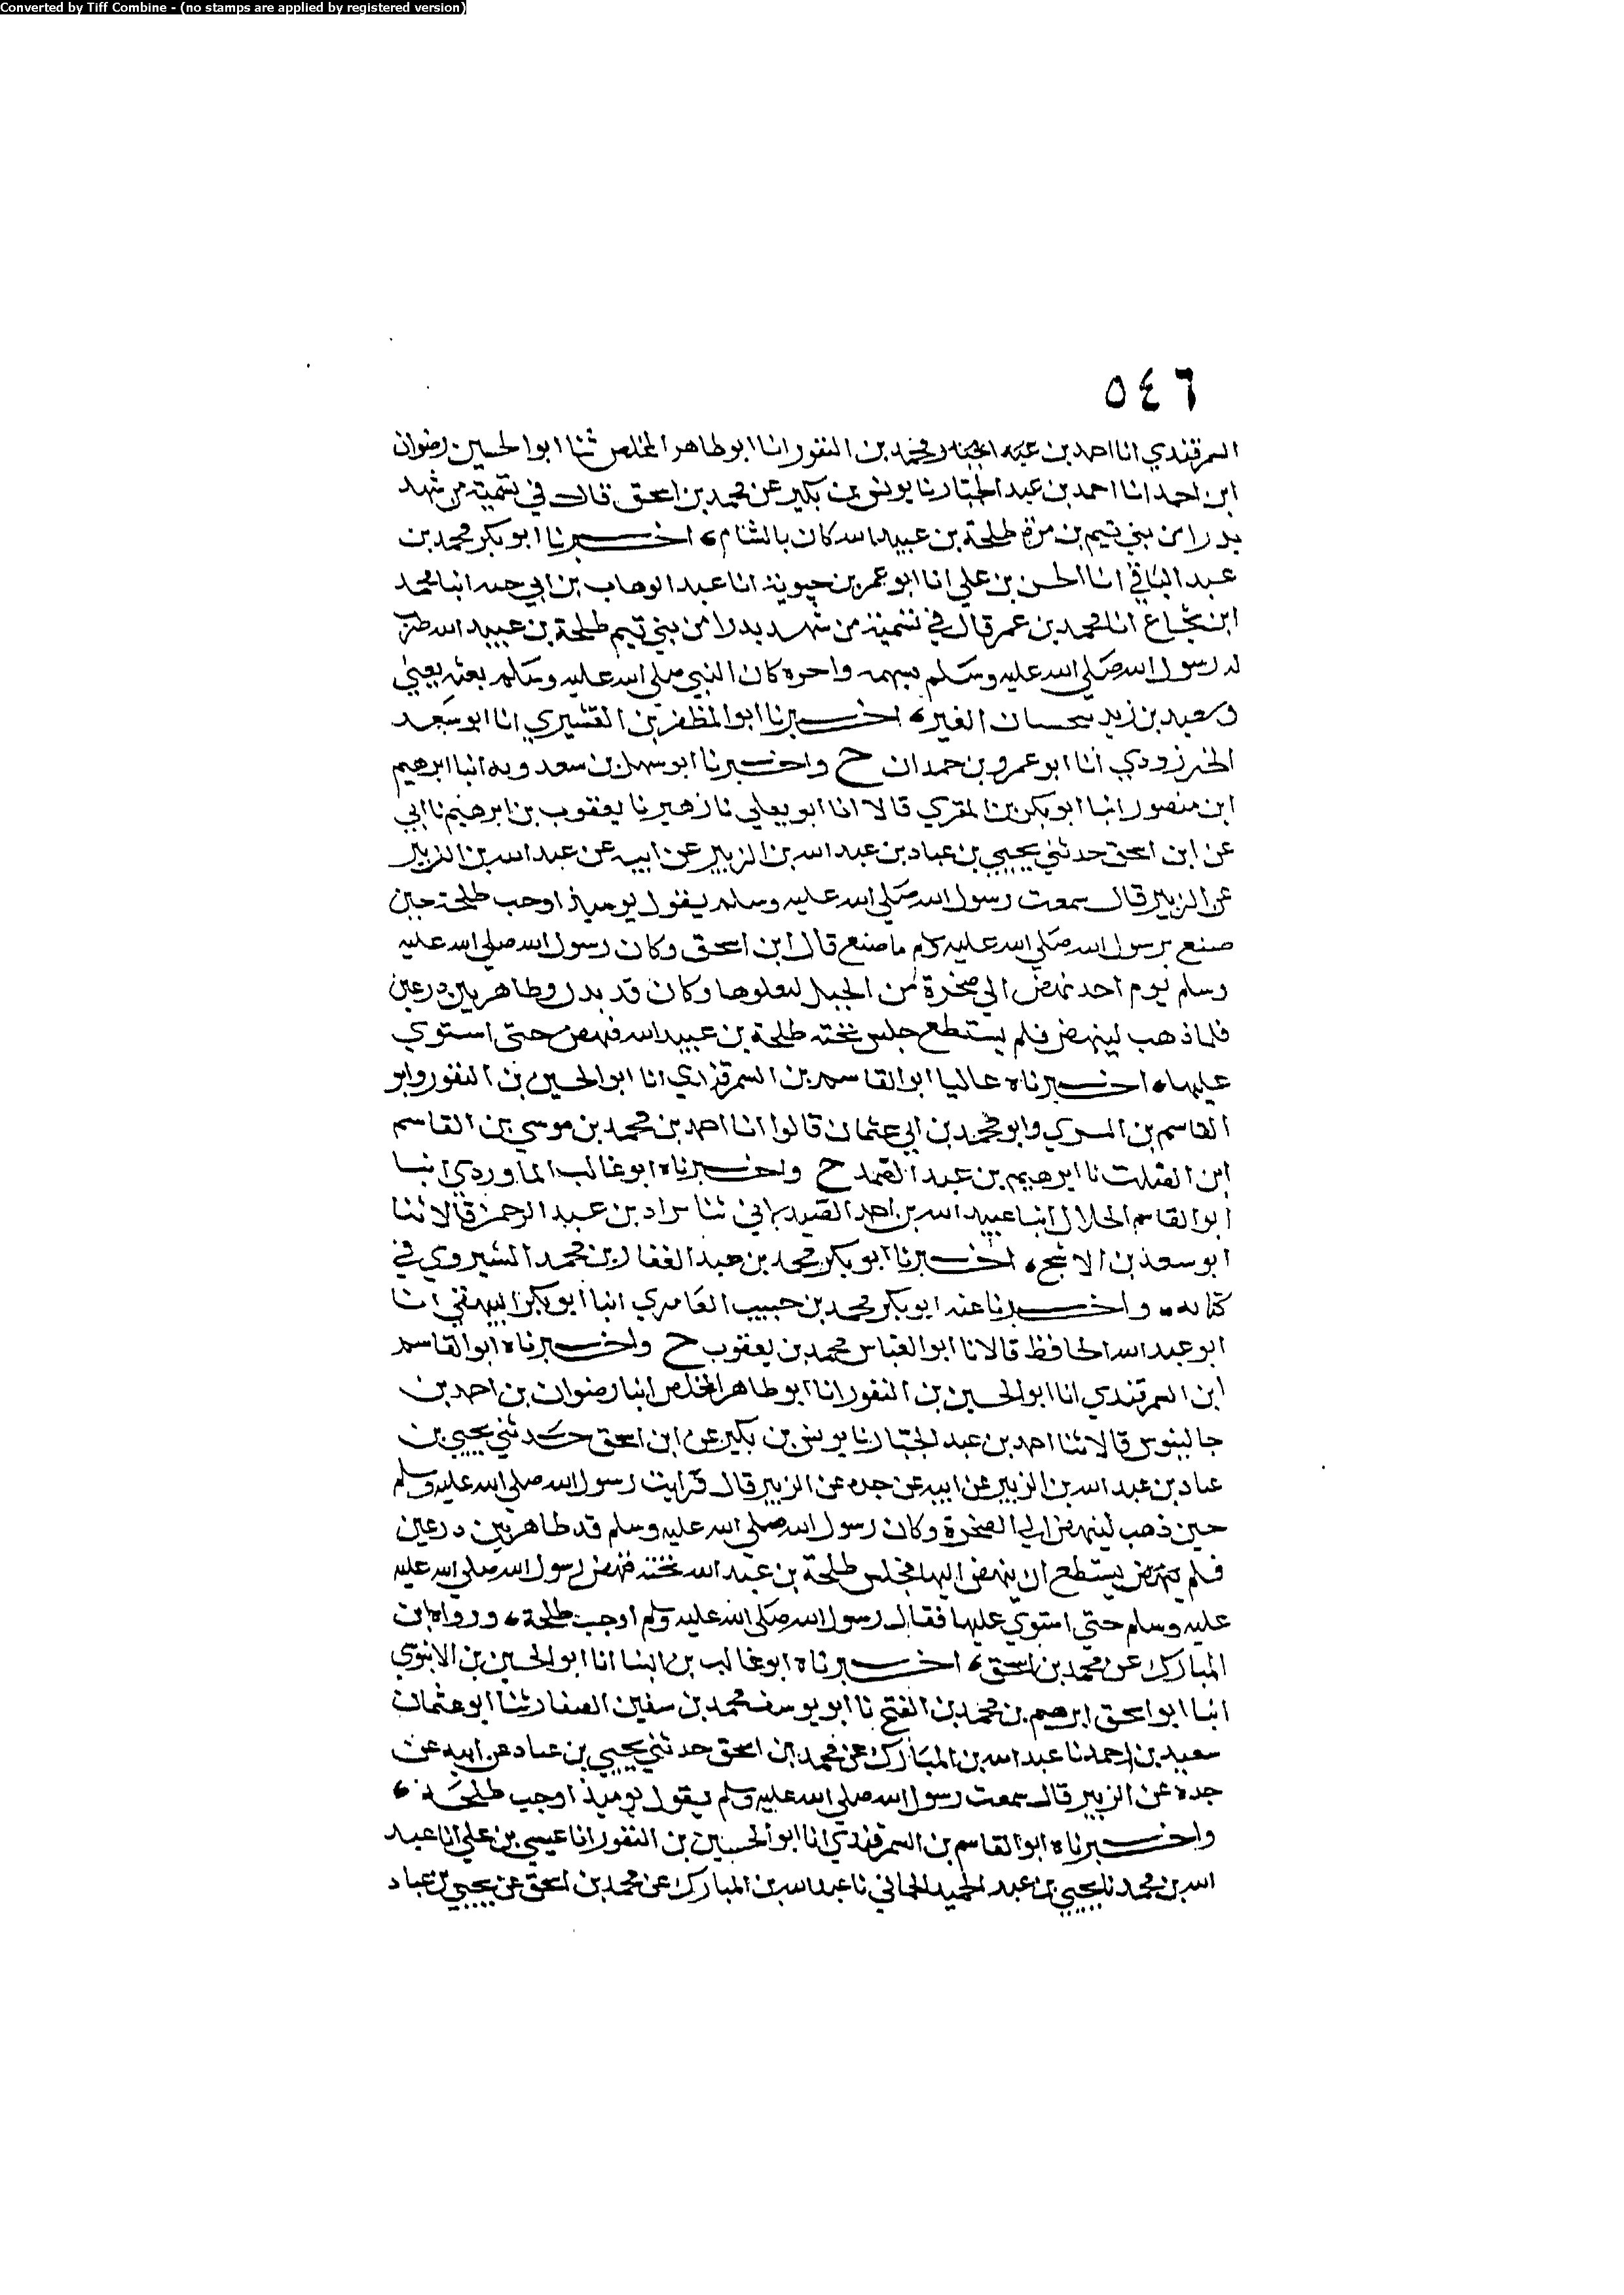 Converted by Tiff Combine - (no stamps are applied by registered version)
٥٤٦
السمرقندي انا احمد بن محمد بن النقور انا ابو طاهر المخلص ثنا ابو الحسين رضوان
ابن احمد انا احمد بن عبد الجبار نا يونس بن بكير عن محمد بن اسحق قال في تسمية من شهد
بدرا من بني تيم بن مرة طلحة بن عبيد الله كان بالشام، اخبرنا ابو بكر محمد بن
عبد الباقي انا الحسن بن علي انا ابو عمر بن حيوية انا عبد الوهاب بن ابي حيه انبا محمد
ابن شجاع انا محمد بن عمر قال في تسمية من شهد بدرا من بني تيم طلحة بن عبيد الله ضرب
له رسول الله صلى الله عليه وسلم بسهمه واجره كان النبي صلى الله عليه وسلم بعثه يعني
وسعيد بن زيد يتحسسان العير، اخبرنا ابو المظفر بن القشيري انا ابو سعد
الخنزرودي انا ابو عمرو بن حمدان ح واخبرنا ابو سهل بن سعدويه انبا ابرهيم
ابن منصور انبا ابو بكر بن المقري قالا انا ابو يعلي نا زهير نا يعقوب بن ابرهيم نا ابي
عن ابن اسحق حدثني يحيي بن عباد بن عبد الله بن الزبير عن ابيه عن عبد الله بن الزبير
عن الزبير قال سمعت رسول الله صلى الله عليه وسلم يقول يوميذ اوجب طلحة حين
صنع برسول الله صلى الله عليه وسلم ما صنع قال ابن اسحق وكان رسول الله صلى الله عليه
وسلم يوم احد نهض الي صخرة من الجبل ليعلوها وكان قد بدن وظاهر بين درعين
فلما ذهب لينهض فلم يستطع جلس تحته طلحة بن عبيد الله فنهض حتى استوي
عليها، اخبرناه عاليا ابو القاسم بن السمرقندي انا ابو الحسين بن النقور وابو
القاسم بن البسري وابو محمد بن ابي عثمان قالوا انا احمد بن محمد بن موسي بن القاسم
ابن الصلت نا ابرهيم بن عبد الصمد ح واخبرناه ابو غالب الماوردي انبا
ابو القاسم الخلال انبا عبيد الله بن احمد الصيدلاني ثنا يزداد بن عبد الرحمن قالا ثنا
ابو سعد بن الاشج، اخبرنا ابو بكر محمد بن عبد الغفار بن محمد الشيروي في
كتابه، واخبرنا عنه ابو بكر محمد بن حبيب العامري انبا ابو بكر البيهقي انا
ابو عبد الله الحافظ قالا نا ابو العباس محمد بن يعقوب ح واخبرناه ابو القاسم
ابن السمرقندي انا ابو الحسين بن النقور انا ابو طاهر المخلص انبا رضوان بن احمد بن
جالينوس قالا ثنا احمد بن عبد الجبار نا يونس بن بكير عن ابن اسحق حدثني يحيي بن
عباد بن عبد الله بن الزبير عن ابيه عن جده عن الزبير قال فرايت رسول الله صلى الله عليه وسلم
حين ذهب لينهض الي الصخرة وكان رسول الله صلى الله عليه وسلم قد ظاهر بين درعين
فلم يستطع ان ينهض اليها فجلس طلحة بن عبيد الله تحته فنهض رسول الله صلى الله عليه
عليه وسلم حتى استوي عليها فقال رسول الله صلى الله عليه وسلم اوجب طلحة، ورواه ابن
المبارك عن محمد بن اسحق، اخبرناه ابو غالب بن البنا انا ابو الحسين بن الابنوسي
انبا ابو اسحق ابرهيم بن محمد بن الفتح نا ابو يوسف محمد بن سفين الصفار ثنا ابو عثمان
سعيد بن احمد نا عبد الله بن المبارك عن محمد بن اسحق حدثني يحيي بن عباد عن ابيه عن
جده عن الزبير قال سمعت رسول الله صلى الله عليه وسلم يقول يوميذ اوجب طلحة،
واخبرناه ابو القاسم بن السمرقندي انا ابو الحسين بن النقور انا عيسي بن علي انا عبد
الله بن محمد نا يحيي بن عبد الحميد الحماني نا عبد الله بن المبارك عن محمد بن اسحق عن يحيي بن عباد